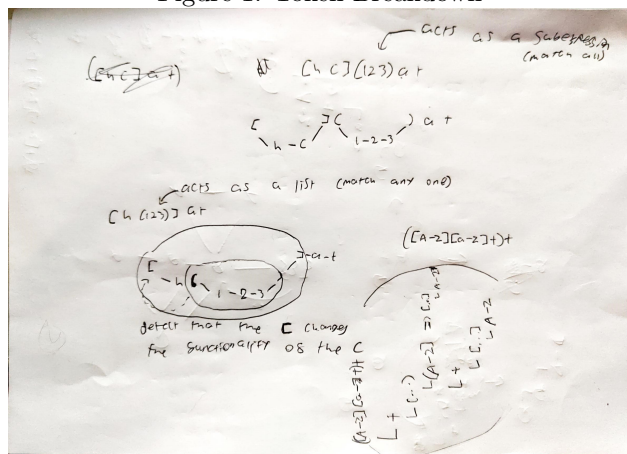 Figure 1: Token Breakdown
acts as a subexpression
(match all)
([hc]at)
[hc](123)at
[ ]( ) a t
h-c 1-2-3
acts as a list (match any one)
[h(123)]at
([A-Z][a-z]+)+
[ ]-a-t
-h ( )
1-2-3
detect that the [ changes
the functionality of the (
([A-Z][a-z]+)+
L +
L (..)
L [A-Z] => [..]
L A-Z
L +
L [..]
L A-Z